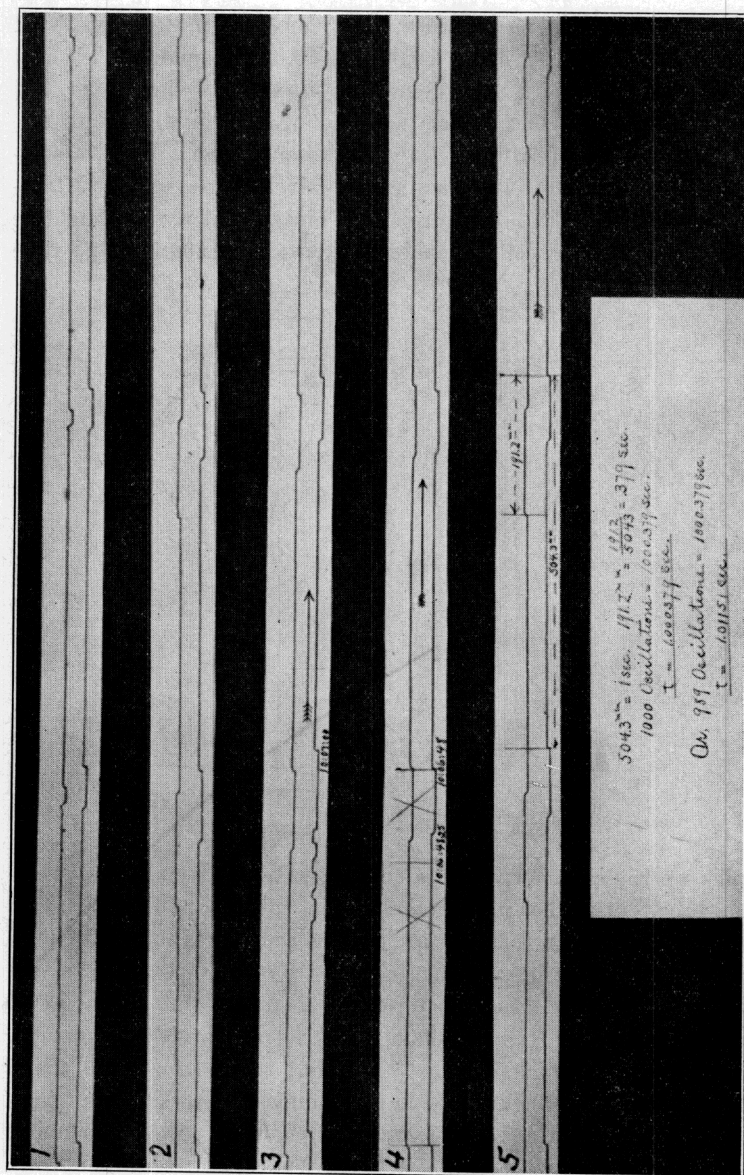 1
2
3
10:07:00
4
10:06:48.25
10:06:48
5
191.2ᵐᵐ
504.3ᵐᵐ
504.3ᵐᵐ = 1 sec. 191.2ᵐᵐ = 1912/5043 = .379 sec.
1000 Oscillations = 1000.379 sec.
t = 1.000379 sec.
Or. 989 Oscillations = 1000.379 sec.
t = 1.01151 sec.